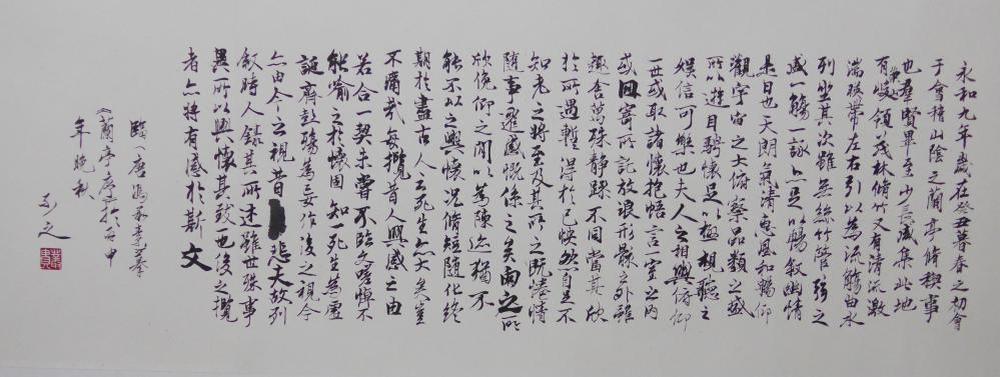 永和九年歲在癸丑暮春之初會
于會稽山陰之蘭亭脩稧事
也羣賢畢至少長咸集此地
有峻領茂林脩竹又有清流激
湍暎帶左右引以為流觴曲水
列坐其次雖無絲竹管弦之
盛一觴一詠亦足以暢敘幽情
是日也天朗氣清惠風和暢仰
觀宇宙之大俯察品類之盛
所以遊目騁懷足以極視聽之
娛信可樂也夫人之相與俯仰
一世或取諸懷抱悟言一室之內
或因寄所託放浪形骸之外雖
趣舍萬殊靜躁不同當其欣
於所遇暫得於己快然自足不
知老之將至及其所之既惓情
隨事遷感慨係之矣向之所
欣俛仰之間以為陳迹猶不
能不以之興懷況脩短隨化終
期於盡古人云死生亦大矣豈
不痛哉每攬昔人興感之由
若合一契未嘗不臨文嗟悼不
能喻之於懷固知一死生為虛
誕齊彭殤為妄作後之視今
亦由今之視昔悲夫故列
敘時人錄其所述雖世殊事
異所以興懷其致一也後之攬
者亦將有感於斯文
臨（唐馮承素摹
《蘭亭序》於丙申
年晚秋